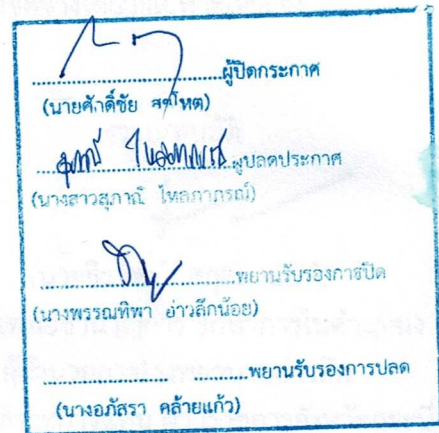 ผู้ปิดกระกาศ
(นายศักดิ์ชัย
ผู้ปลดประกาศ
(นางสาวสุภาณี ไหลภาภรณ์)
พยานรับรองการปิด
(นางพรรณทิพา อ่าวลึกน้อย)
พยานรับรองการปลด
(นางอภัสรา คล้ายแก้ว)